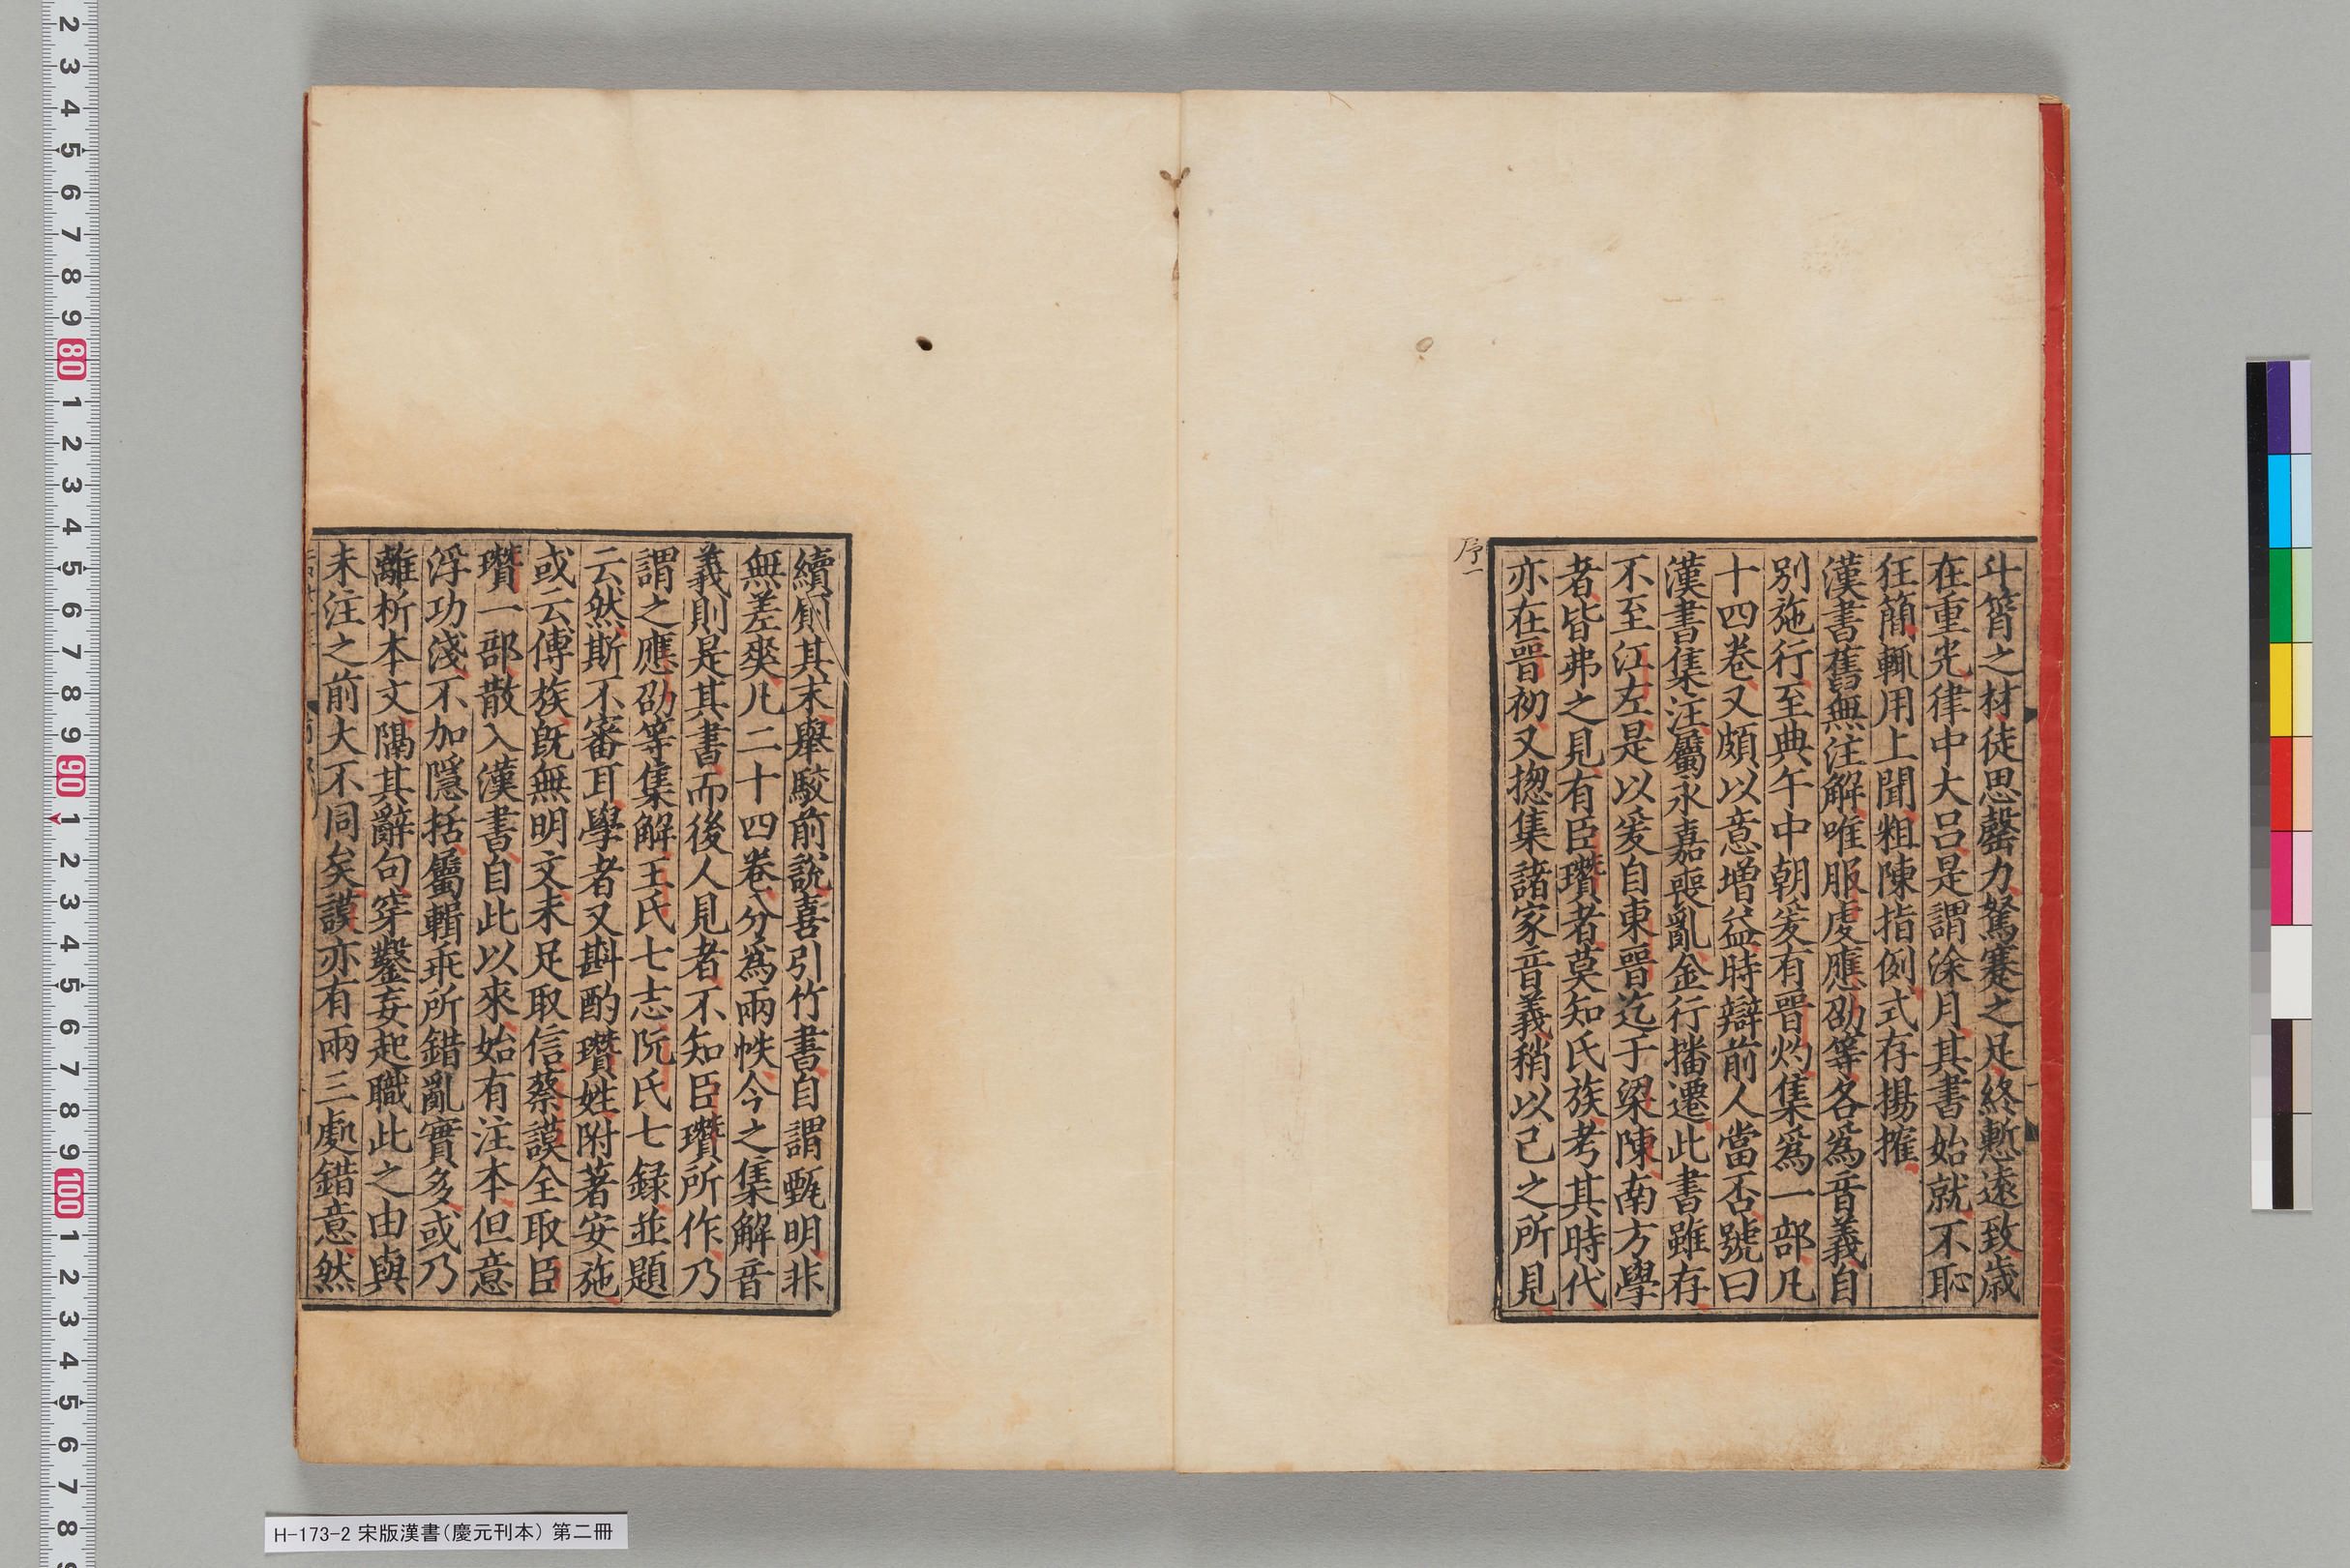 斗筲之材徒思罄力駑蹇之足終慙遠致歳
在重光律中大呂是謂涂月其書始就不恥
狂簡輒用上聞粗陳指例式存揚搉
漢書舊無注解唯服虔應劭等各爲音義自
別施行至典午中朝爰有晉灼集爲一部凡
十四卷又頗以意增益時辯前人當否號曰
漢書集注屬永嘉喪亂金行播遷此書雖存
不至江左是以爰自東晉迄于梁陳南方學
者皆弗之見有臣瓚者莫知氏族考其時代
亦在晉初又揔集諸家音義稍以己之所見
序一
續廁其末舉駮前說喜引竹書自謂甄明非
無差爽凡二十四卷分爲兩帙今之集解音
義則是其書而後人見者不知臣瓚所作乃
謂之應劭等集解王氏七志阮氏七録並題
云然斯不審耳學者又斟酌瓚姓附著安施
或云傅族旣無明文未足取信蔡謨全取臣
瓚一部散入漢書自此以來始有注本但意
浮功淺不加隱括屬輯乖所錯亂實多或乃
離析本文隔其辭句穿鑿妄起職此之由與
未注之前大不同矣謨亦有兩三處錯意然
H-173-2 宋版漢書(慶元刊本) 第二冊
2 3 4 5 6 7 8 9 80 1 2 3 4 5 6 7 8 9 90 1 2 3 4 5 6 7 8 9 100 1 2 3 4 5 6 7 8